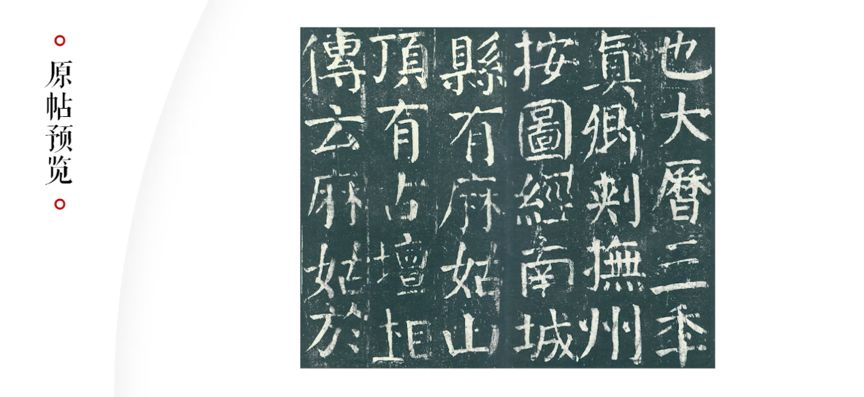 原帖预览
也大曆三年
真卿刺撫州
按圖經南城
縣有麻姑山
頂有古壇相
傳云麻姑於